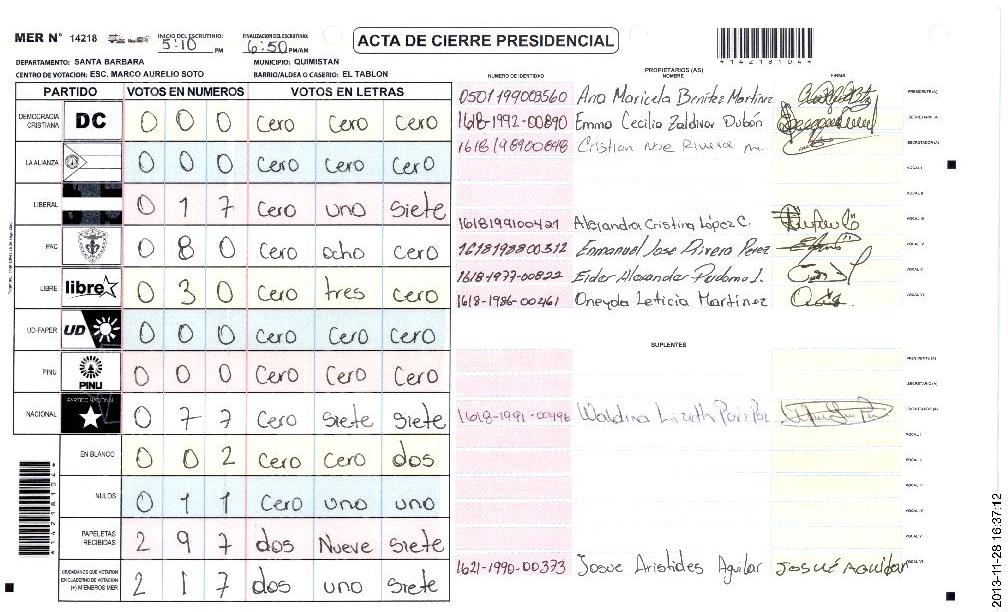 MER N° 14218 INICIO DEL ESCRUTINIO: 5:10 PM FINALIZACION DEL ESCRUTINIO: 6:50 PM/AM
ACTA DE CIERRE PRESIDENCIAL
*14218104*
DEPARTAMENTO: SANTA BARBARA MUNICIPIO: QUIMISTAN
CENTRO DE VOTACION: ESC. MARCO AURELIO SOTO BARRIO/ALDEA O CASERIO: EL TABLON
PARTIDO VOTOS EN NUMEROS VOTOS EN LETRAS
DEMOCRACIA CRISTIANA DC 0 0 0 Cero Cero Cero
LA ALIANZA 0 0 0 Cero Cero Cero
LIBERAL 0 1 7 Cero uno siete
PAC 0 8 0 Cero ocho cero
LIBRE libre 0 3 0 Cero tres cero
UD-FAPER UD 0 0 0 Cero Cero Cero
PINU PINU 0 0 0 Cero Cero Cero
NACIONAL PARTIDO NACIONAL 0 7 7 Cero siete siete
EN BLANCO 0 0 2 Cero Cero dos
NULOS 0 1 1 Cero uno uno
PAPELETAS RECIBIDAS 2 9 7 dos Nueve siete
CIUDADANOS QUE VOTARON EN CUADERNO DE VOTACION (+) MIEMBROS MER 2 1 7 dos uno siete
*14218104*
PROPIETARIOS (AS)
NUMERO DE IDENTIDAD NOMBRE FIRMA
0501199003560 Ana Maricela Benitez Martinez PRESIDENTE(A)
1618-1992-00890 Emma Cecilia Zaldivar Dubón SECRETARIO(A)
1618198900898 Cristian Noe Rivera m. ESCRUTADOR(A)
VOCAL I
VOCAL II
1618199100421 Alejandra Cristina López C. VOCAL III
1618198800312 Enmanuel Jose Rivera Perez VOCAL IV
1618-1977-00822 Eider Alexander Perdomo J. VOCAL V
1618-1986-00461 Oneyda Leticia Martinez VOCAL VI
SUPLENTES
PRESIDENTE(A)
SECRETARIO(A)
1618-1991-00496 Waldina Lizeth Perez Paz ESCRUTADOR(A)
VOCAL I
VOCAL II
VOCAL III
VOCAL IV
VOCAL V
1621-1990-00373 Josue Aristides Aguilar JOSUÉ AGUILAR VOCAL VI
2013-11-28 16:37:12